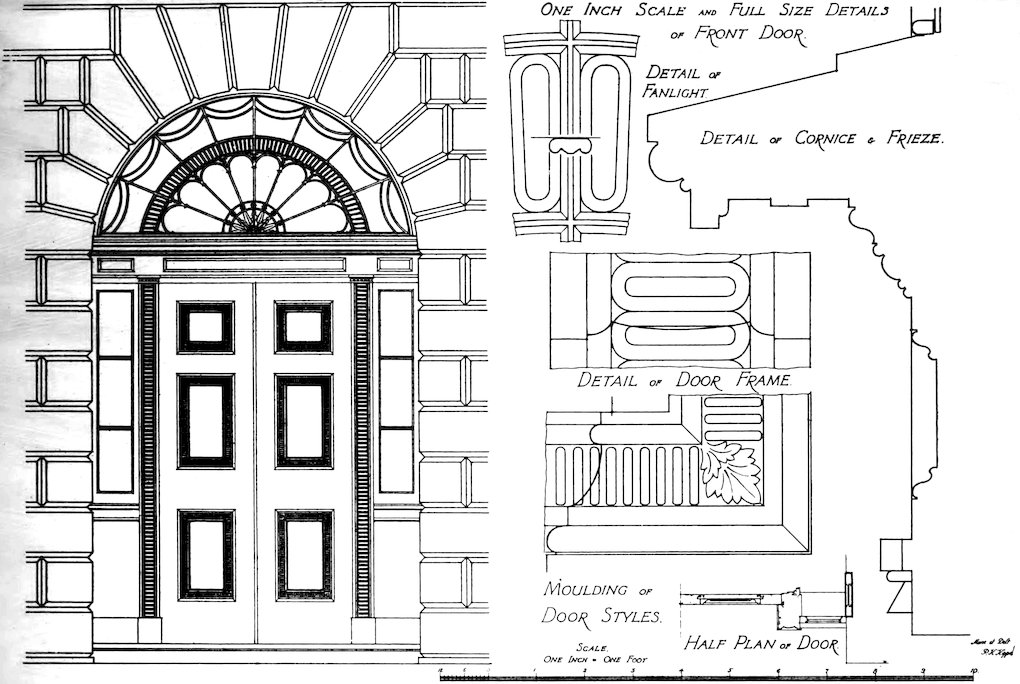 ONE INCH SCALE AND FULL SIZE DETAILS
OF FRONT DOOR.
DETAIL OF
FANLIGHT
DETAIL OF CORNICE & FRIEZE.
DETAIL OF DOOR FRAME.
MOULDING OF
DOOR STYLES.
HALF PLAN OF DOOR
SCALE.
ONE INCH = ONE FOOT
1 2 3 4 5 6 7 8 9 10